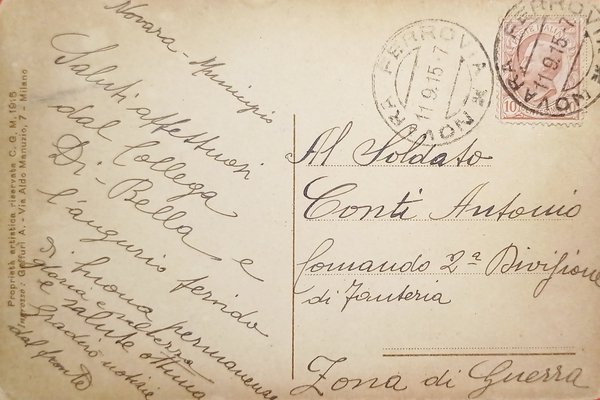 Novara - Municipio
Saluti affettuosi
dal Collega
Di-Bella e
l'augurio fervido
di buona permanenza
e salute ottima
Gradirò notizie
dal fronte
NOVARA FERROVIA
11.9.15.7
NOVARA FERROVIA
11.9.15.7
10
Al Soldato
Conti Antonio
Comando 2ª Divisione
di Fanteria
Zona di Guerra
Proprietà artistica riservata C. G. M. 1915
Ingrosso: Gaffuri A. - Via Aldo Manuzio, 7 - Milano